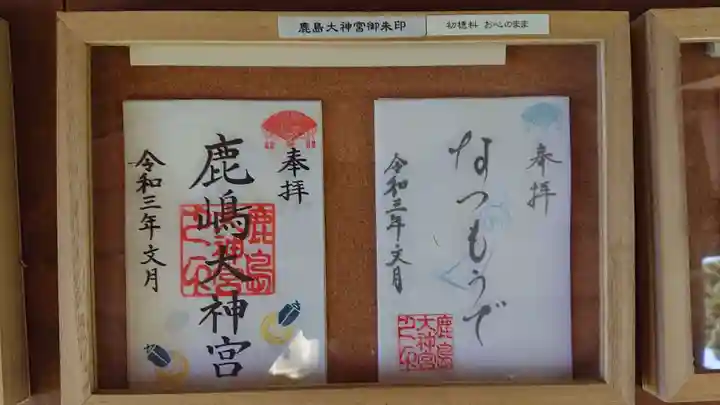 鹿島大神宮御朱印
初穂料 お心のまま
奉拝
鹿嶋大神宮
鹿島大神宮
令和三年文月
奉拝
なつもうで
令和三年文月
鹿島大神宮